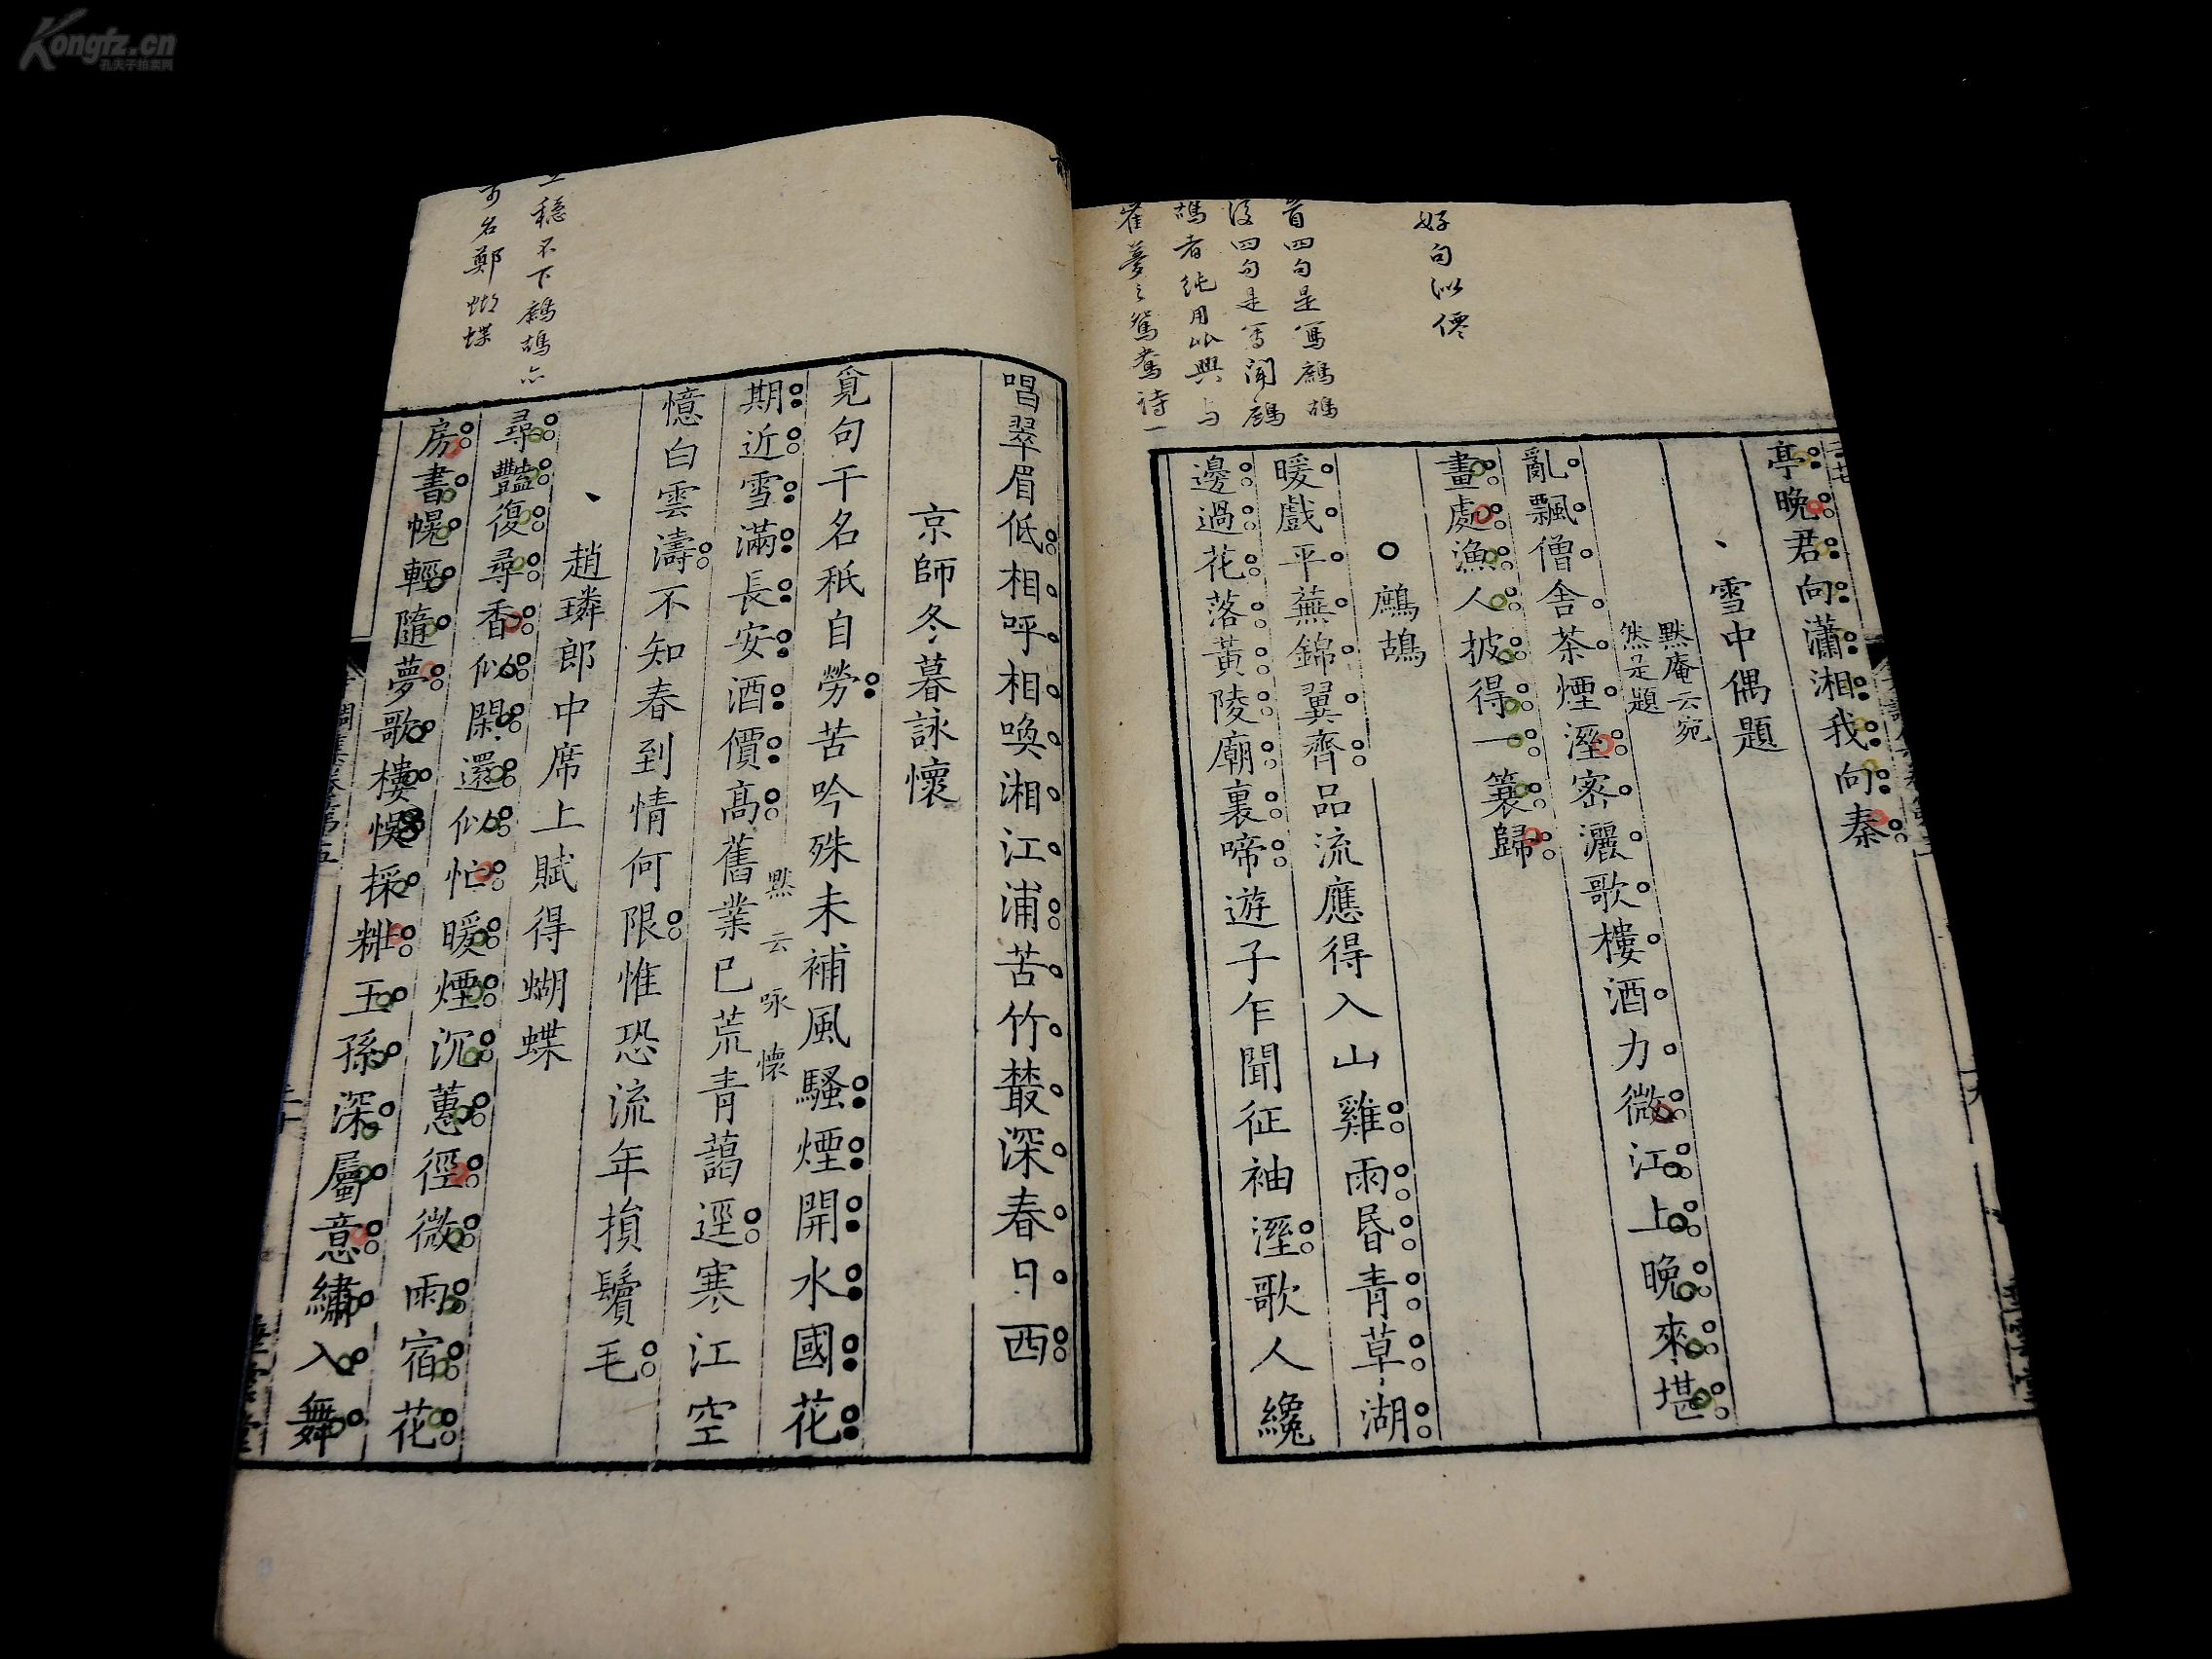 Kongfz.cn
孔夫子拍卖网
好句似僊
首四句是寫鷓鴣
後四句是寫聞鷓
鴣者純用比興與
崔夢之鴛鴦詩一
亭晚君向瀟湘我向秦
雪中偶題
默庵云宛
然是題
亂飄僧舍茶煙溼密灑歌樓酒力微江上晚來堪
畫處漁人披得一簑歸
鷓鴣
暖戲平蕪錦翼齊品流應得入山雞雨昏青草湖
邊過花落黃陵廟裏啼遊子乍聞征袖溼歌人纔
穩不下鷓鴣亦
可名鄭蝴蝶
唱翠眉低相呼相喚湘江浦苦竹叢深春日西
京師冬暮詠懷
覓句干名秖自勞苦吟殊未補風騷煙開水國花
默云咏懷
期近雪滿長安酒價高舊業已荒青藹逕寒江空
憶白雲濤不知春到情何限惟恐流年損鬢毛
趙璘郎中席上賦得蝴蝶
尋豔復尋香似閑還似忙暖煙沉蕙徑微雨宿花
房書幌輕隨夢歌樓悞採粃王孫深屬意繡入舞